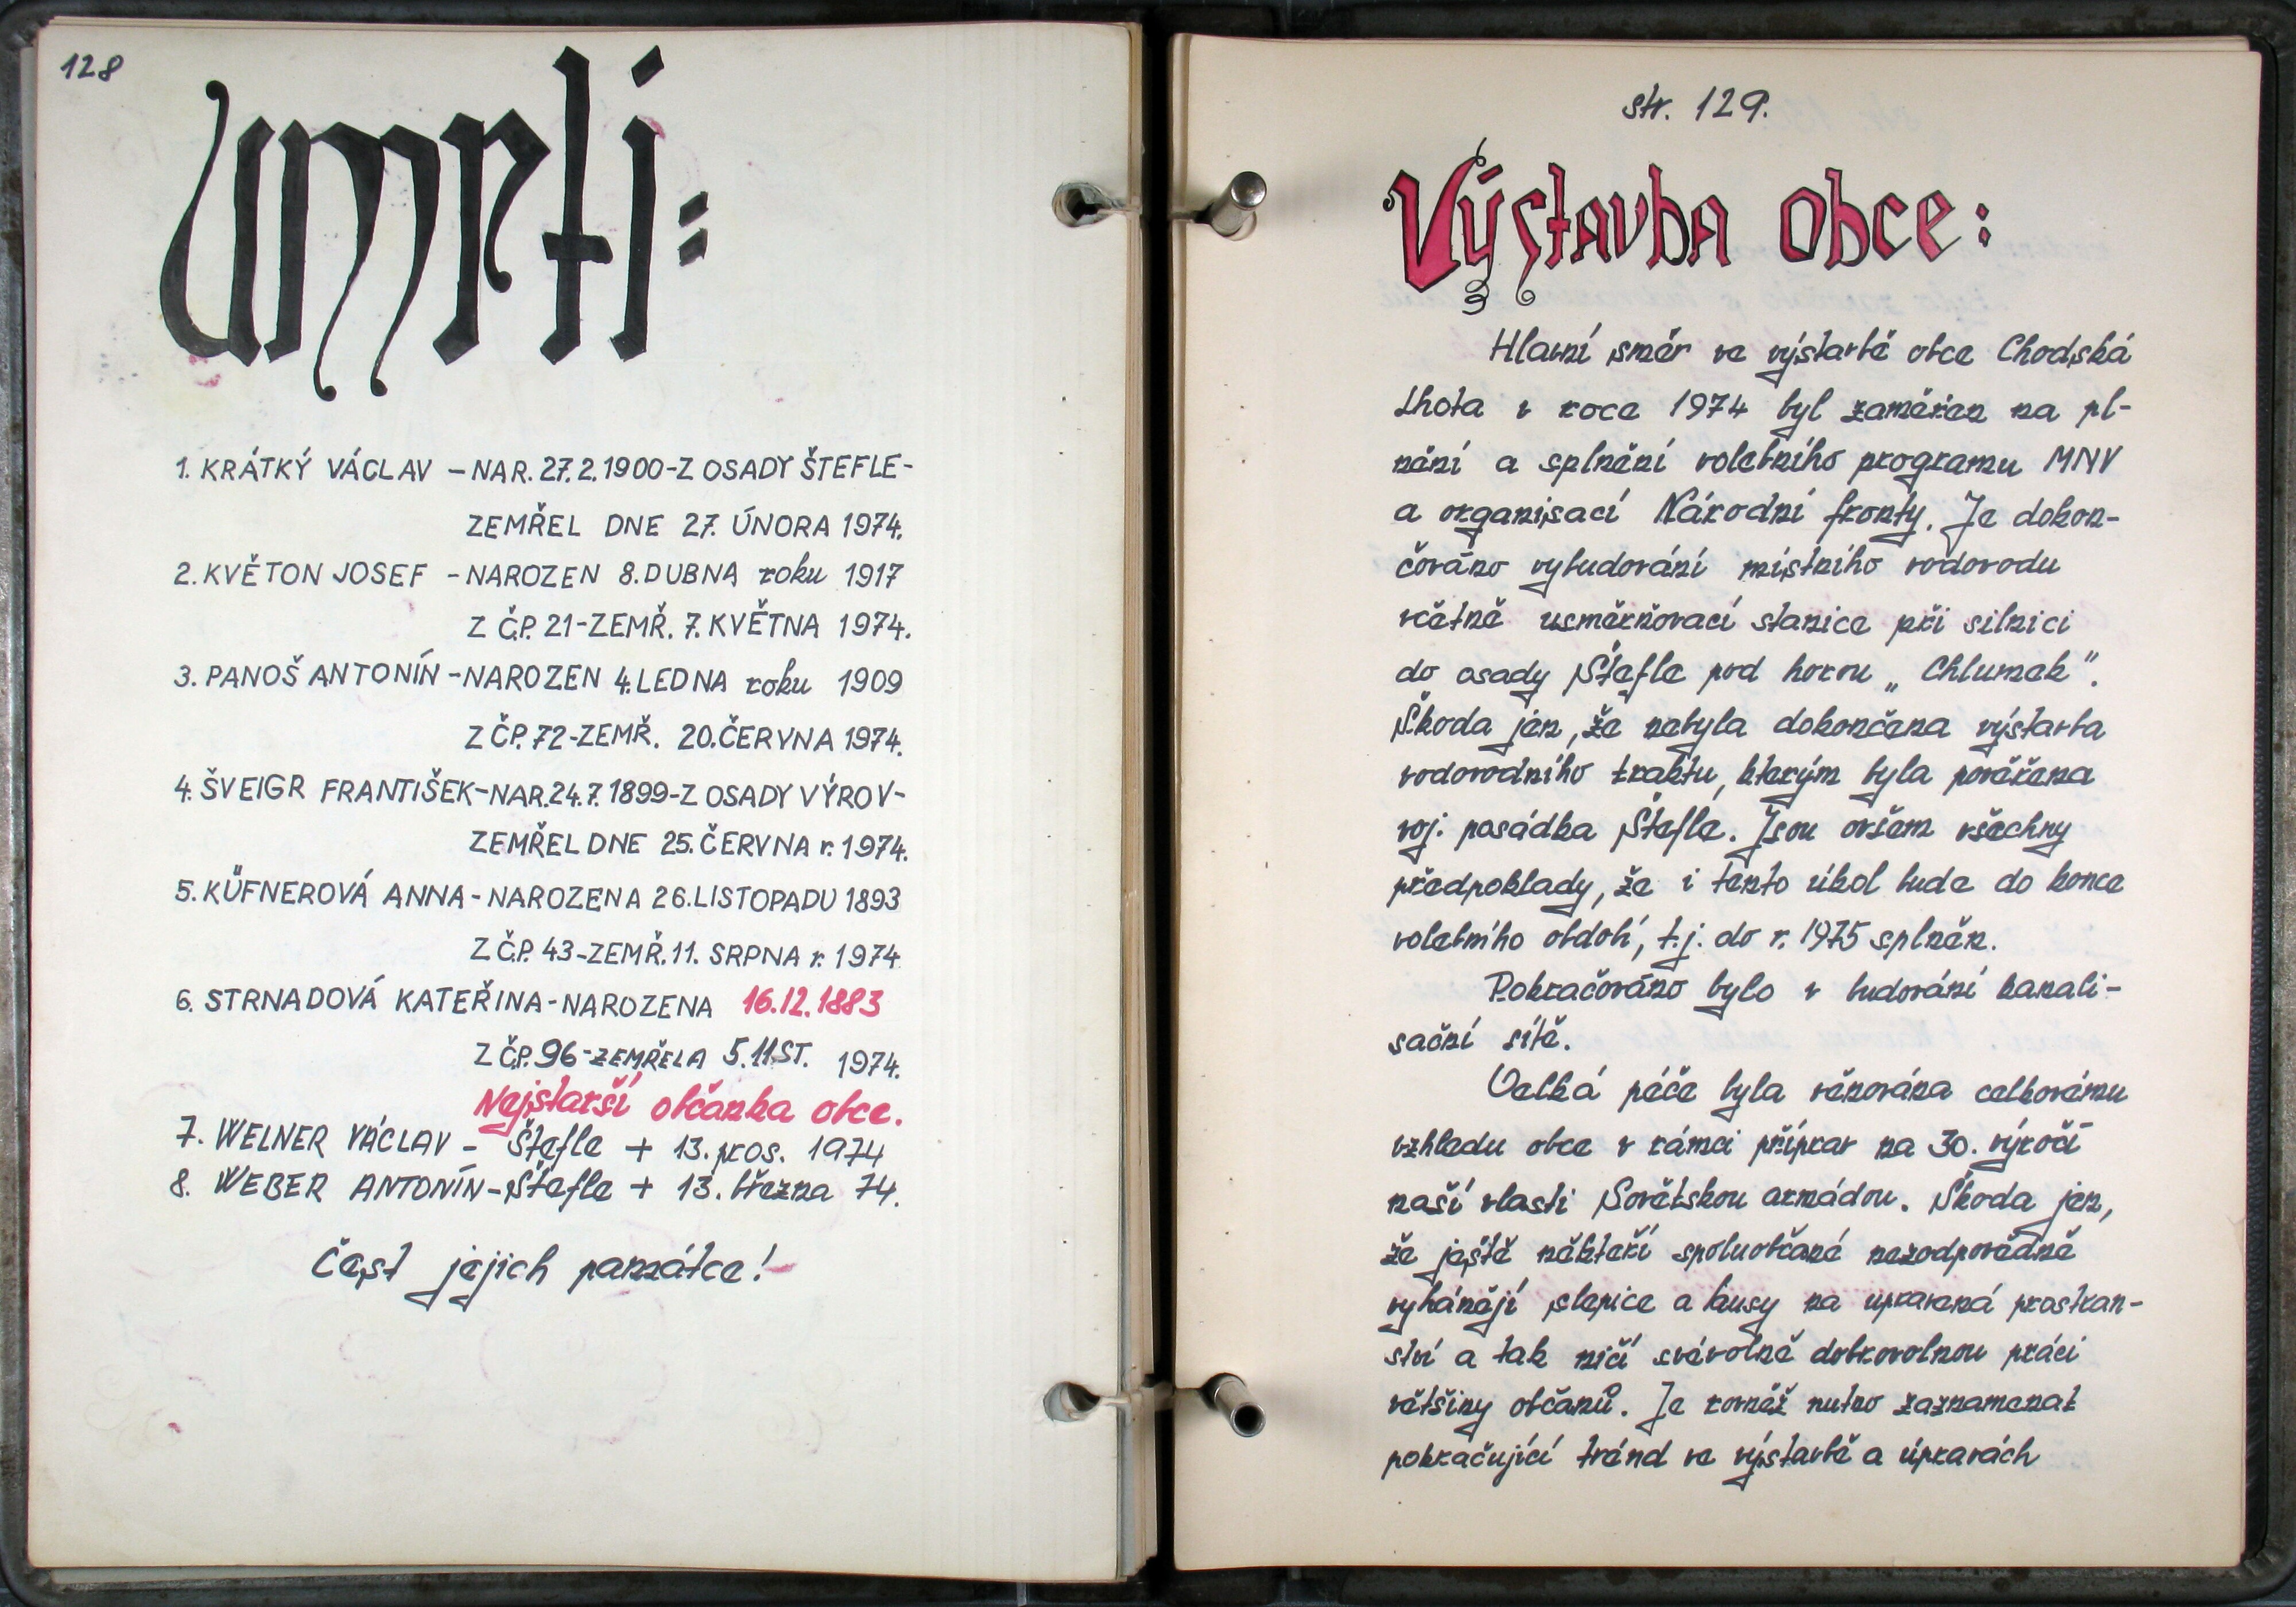 128
Umrtí:
1. KRÁTKÝ VÁCLAV – NAR. 27.2.1900-Z OSADY ŠTEFLE-
ZEMŘEL DNE 27. ÚNORA 1974.
2. KVĚTON JOSEF - NAROZEN 8. DUBNA roku 1917
Z ČP. 21-ZEMŘ. 7. KVĚTNA 1974.
3. PANOŠ ANTONÍN - NAROZEN 4. LEDNA roku 1909
Z ČP. 72-ZEMŘ. 20. ČERVNA 1974.
4. ŠVEIGR FRANTIŠEK-NAR. 24.7.1899-Z OSADY VÝROV-
ZEMŘEL DNE 25. ČERVNA r. 1974.
5. KÜFNEROVÁ ANNA - NAROZENA 26. LISTOPADU 1893
Z ČP. 43-ZEMŘ. 11. SRPNA r. 1974
6. STRNADOVÁ KATEŘINA - NAROZENA 16.12.1883
Z ČP. 96-ZEMŘELA 5. 11ST. 1974.
Nejstarší občanka obce.
7. WELNER VÁCLAV – Štefle + 13. pros. 1974
8. WEBER ANTONÍN – Štefle + 13. března 74.
Čest jejich památce!
str. 129.
Výstavba obce:
Hlavní směr ve výstavbě obce Chodská
Lhota v roce 1974 byl zaměřen na pl-
nění a splnění volebního programu MNV
a organisací Národní fronty. Je dokon-
čováno vybudování místního vodovodu
včetně usměrňovací stanice při silnici
do osady Štefle pod horou „Chlumek".
Škoda jen, že nebyla dokončena výstavba
vodovodního traktu, kterým byla pověřena
voj. posádka Štefle. Jsou ovšem všechny
předpoklady, že i tento úkol bude do konce
volebního období, t.j. do r. 1975 splněn.
Pokračováno bylo v budování kanali-
sační sítě.
Velká péče byla věnována celkovému
vzhledu obce v rámci příprav na 30. výročí
naší vlasti Sovětskou armádou. Škoda jen,
že ještě někteří spoluobčané nezodpovědně
vyhánějí slepice a husy na upravená prostran-
ství a tak ničí svévolně dobrovolnou práci
většiny občanů. Je rovněž nutno zaznamenat
pokračující trénd ve výstavbě a úpravách